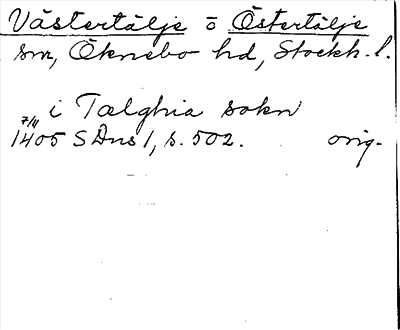 Västertälje o Östertälje
sm, Öknebo hd, Stockh. l.
i Tælghia sokn
7/11
1405 SDns 1, s. 502. orig.